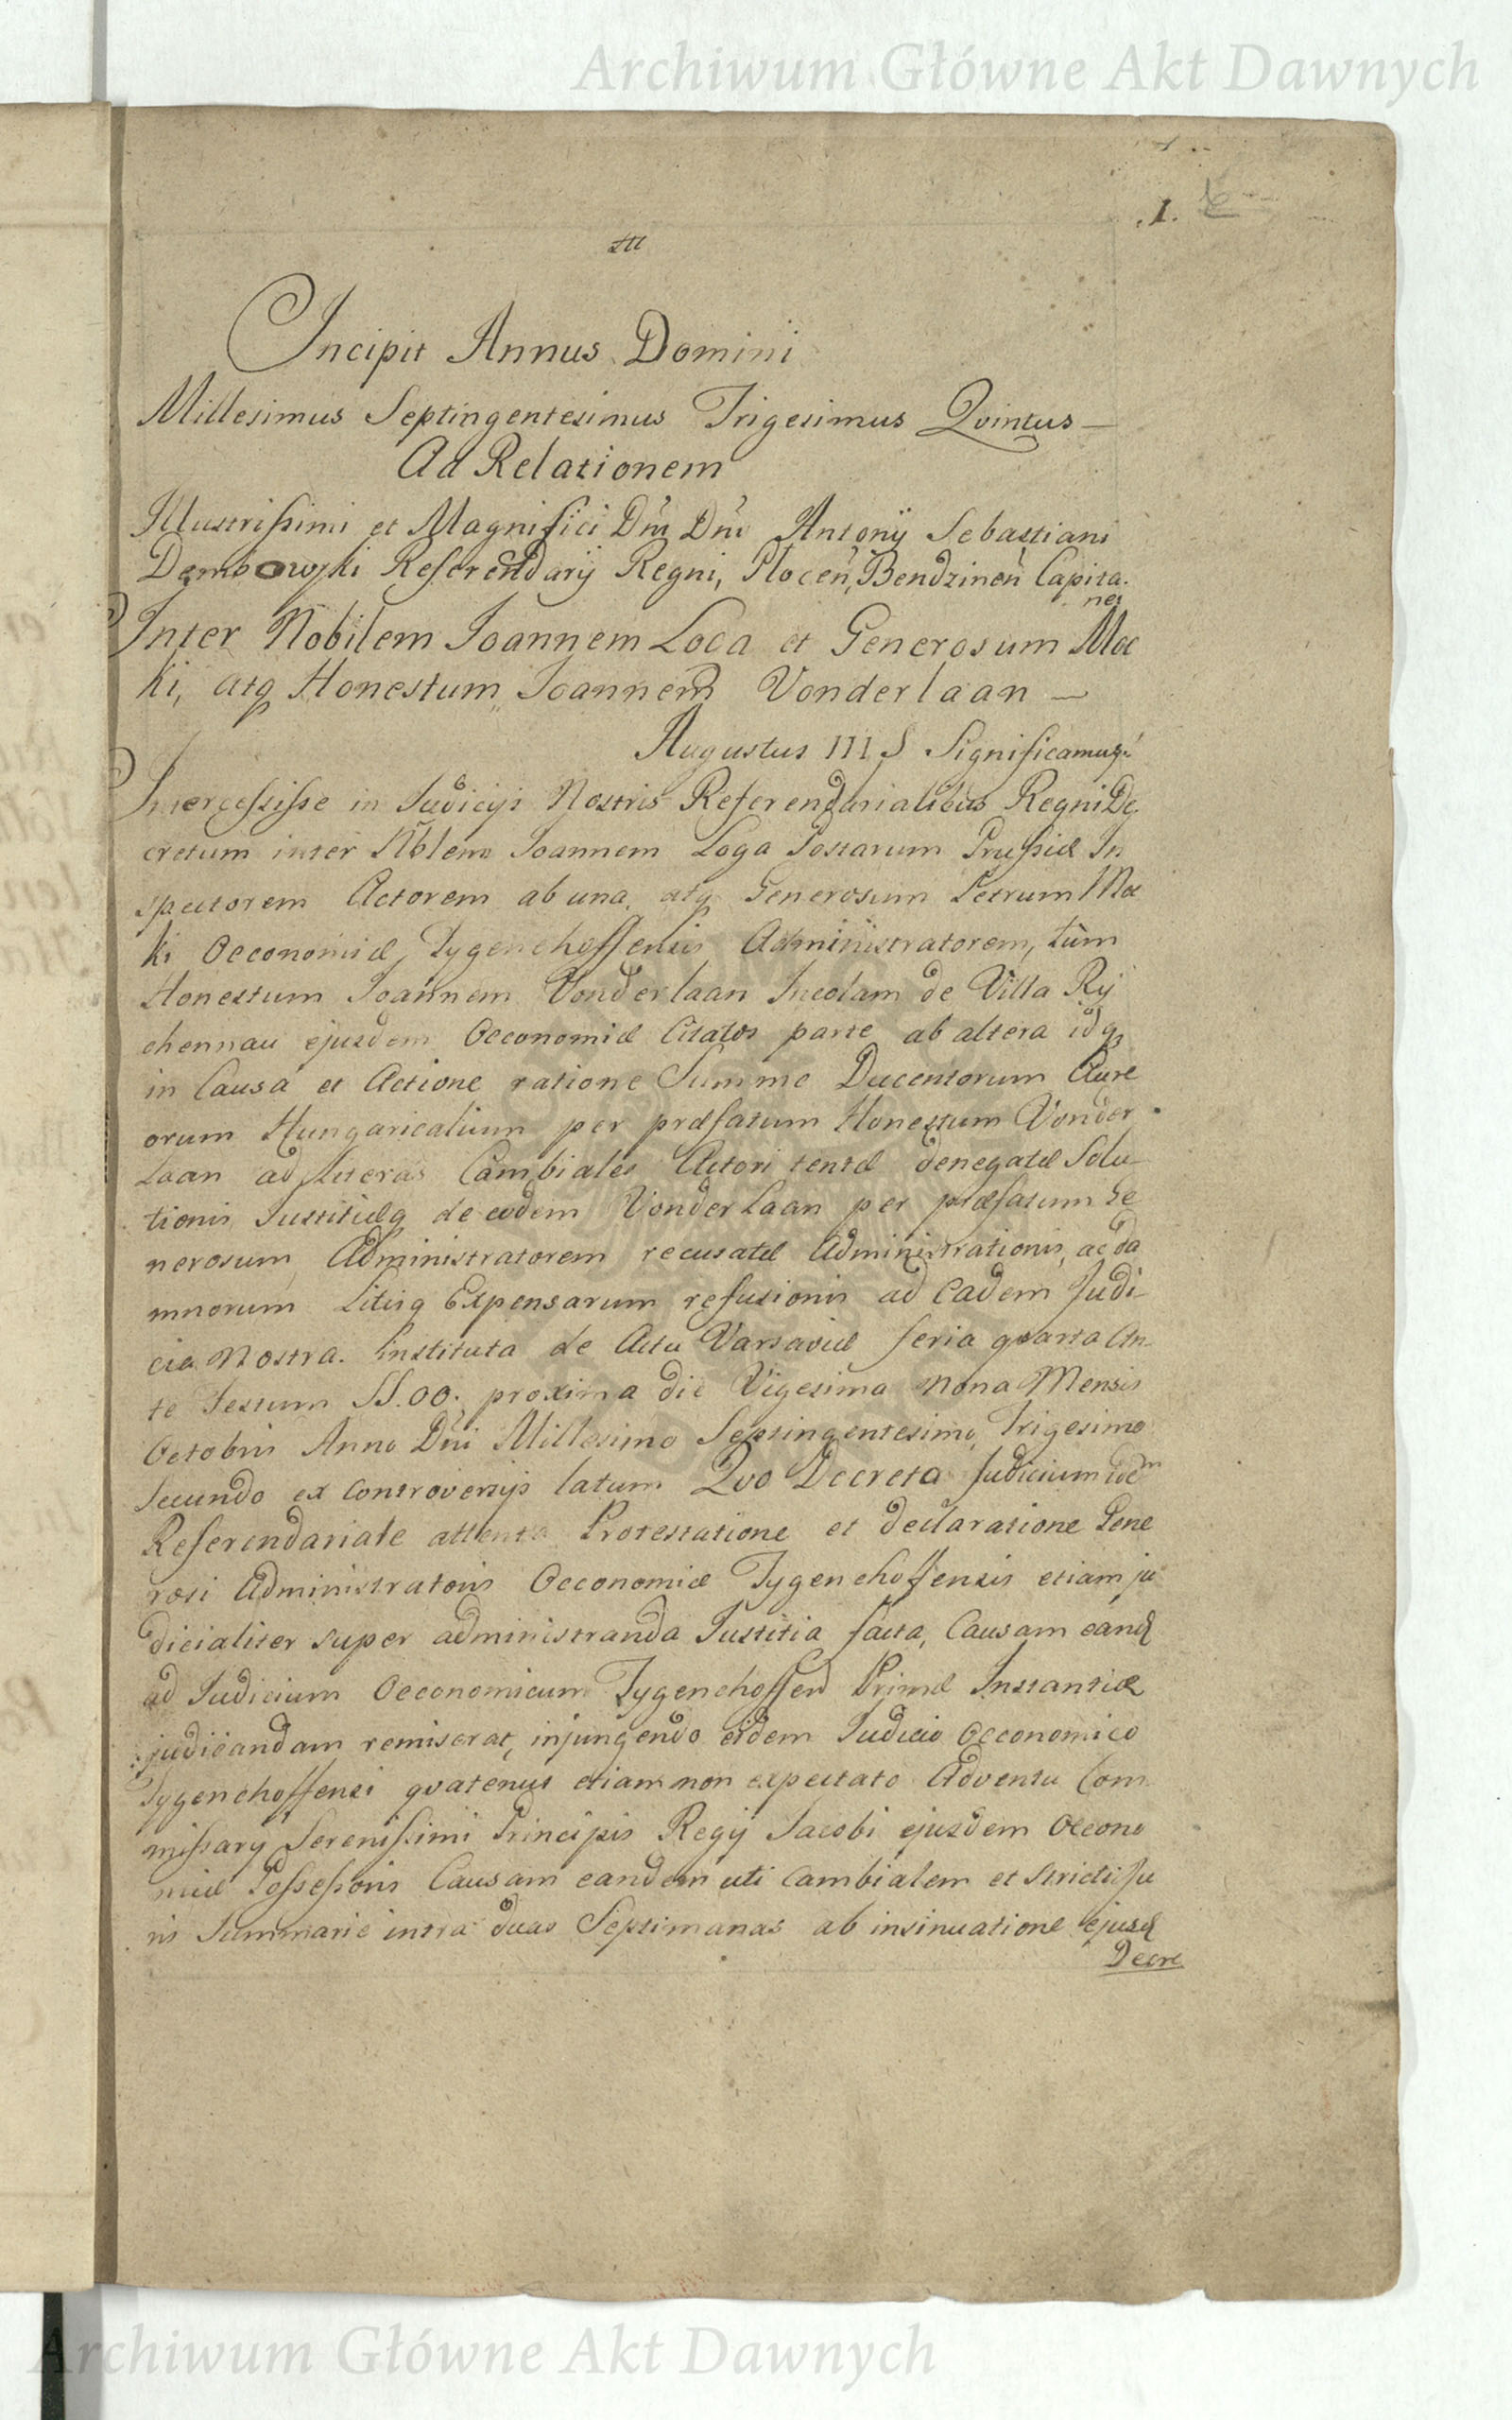 Archiwum Główne Akt Dawnych
.1.
Incipit Annus Domini
Millesimus Septingentesimus Trigesimus Qvintus
Ad Relationem
Illustrissimi et Magnifici Dni Dni Antonij Sebastiani
Dembowski Referendarij Regni, Plocen, Bendzinen Capita-
nei
Inter Nobilem Joannem Loga et Generosum Mac
ki, atq Honestum Joannem Vonderlaan
Augustus III S Significamus
Intercessisse in Judicijs Nostris Referendarialibus Regni De
cretum inter Nblem Joannem Loga Postarum Prussiæ In
spectorem Actorem ab una, atq Generosum Petrum Mac
ki Oeconomiæ Tygenchoffensis Administratorem, tùm
Honestum Joannem Vonderlaan Incolam de Villa Ry
chennau ejusdem Oeconomiæ Citatos parte ab altera idq3
in Causa et Actione ratione Summe Ducentorum Aure
orum Hungaricalium per præfatum Honestum Vonder
Laan ad Literas Cambiales Actori tentæ denegatæ Solu
tionis Justitiæq de eodem Vonder Laan per præfatum Ge
nerosum Administratorem recusatæ Administrationis, ac da
mnorum Litisq Expensarum refusionis ad Eadem Judi-
cia Nostra. Instituta de Actu Varsaviæ feria qvarta An
te Festum SS.OO. proxima die Vigesima Nona Mensis
Octobris Anno Dni Millesimo Septingentesimo Trigesimo
Secundo ex Controversijs latum Qvo Decreto Judicium idem
Referendariale attenta Protestatione et declaratione Gene
rosi Administratoris Oeconomiæ Tygenchoffensis etiam ju
dicialiter super administranda Justitia facta, Causam eand
ad Judicium Oeconomicum Tygenchoffen Primæ Instantiæ
judicandam remiserat, injungendo eidem Judicio Oeconomico
Tygenchoffensi qvatenus etiam non expectato Adventu Com
missarij Serenissimi Principis Regij Jacobi ejusdem Oecono
miæ Possessoris Causam eandem uti Cambialem et Stricti Ju
ris Summarie intra duas Septimanas ab insinuatione ejusd
Decre
Archiwum Główne Akt Dawnych